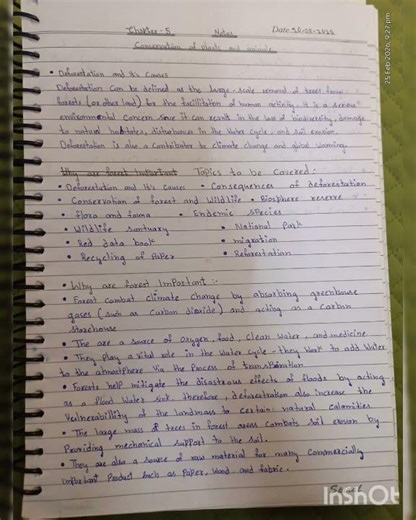 Chapter - 5 Notes Date
Conservation of plants and animals
• Deforestation and it's Causes
Deforestation can be defined as the large-scale removal of trees from
forests (or other land) for the facilitation of human activity. It is a serious
environmental Concern since it can result in the loss of biodiversity, damage
to natural habitates, disturbances in the Water Cycle, and soil erosion.
Deforestation is also a contributer to climate change and global warming.
Why are forest important Topics to be Covered:
• Deforestation and it's Causes • Consequences of deforestation
• Conservation of forest and Wildlife • Biosphere reserve
• Flora and fauna • Endemic species
• Wildlife Santuary • National Park
• Red data book • migration
• Recycling of Paper • Reforestation
• Why are forest Important :-
• Forest combat climate change by absorbing greenhouse
gases (such as Carbon dioxide) and acting as a Carbon
storehouse
• The are a source of oxygen, food, clean water, and medicine
• They play a vital role in the Water cycle - they Work to add Water
to the atmostphere Via the Process of transpiration
• Forests help mitigate the disastrous effects of floods by acting
as a flood Water sink. therefore, deforestation also increase the
Vulnerabillity of the landmass to Certain natural calamities
• The large mass of trees in forest areas Combats soil erosion by
Providing mechanical support to the soil.
• They are also a source of raw material for many Commercially
Important Product such as Paper, Wood and fabric.
InShot
25 Feb 2026, 9:27 pm